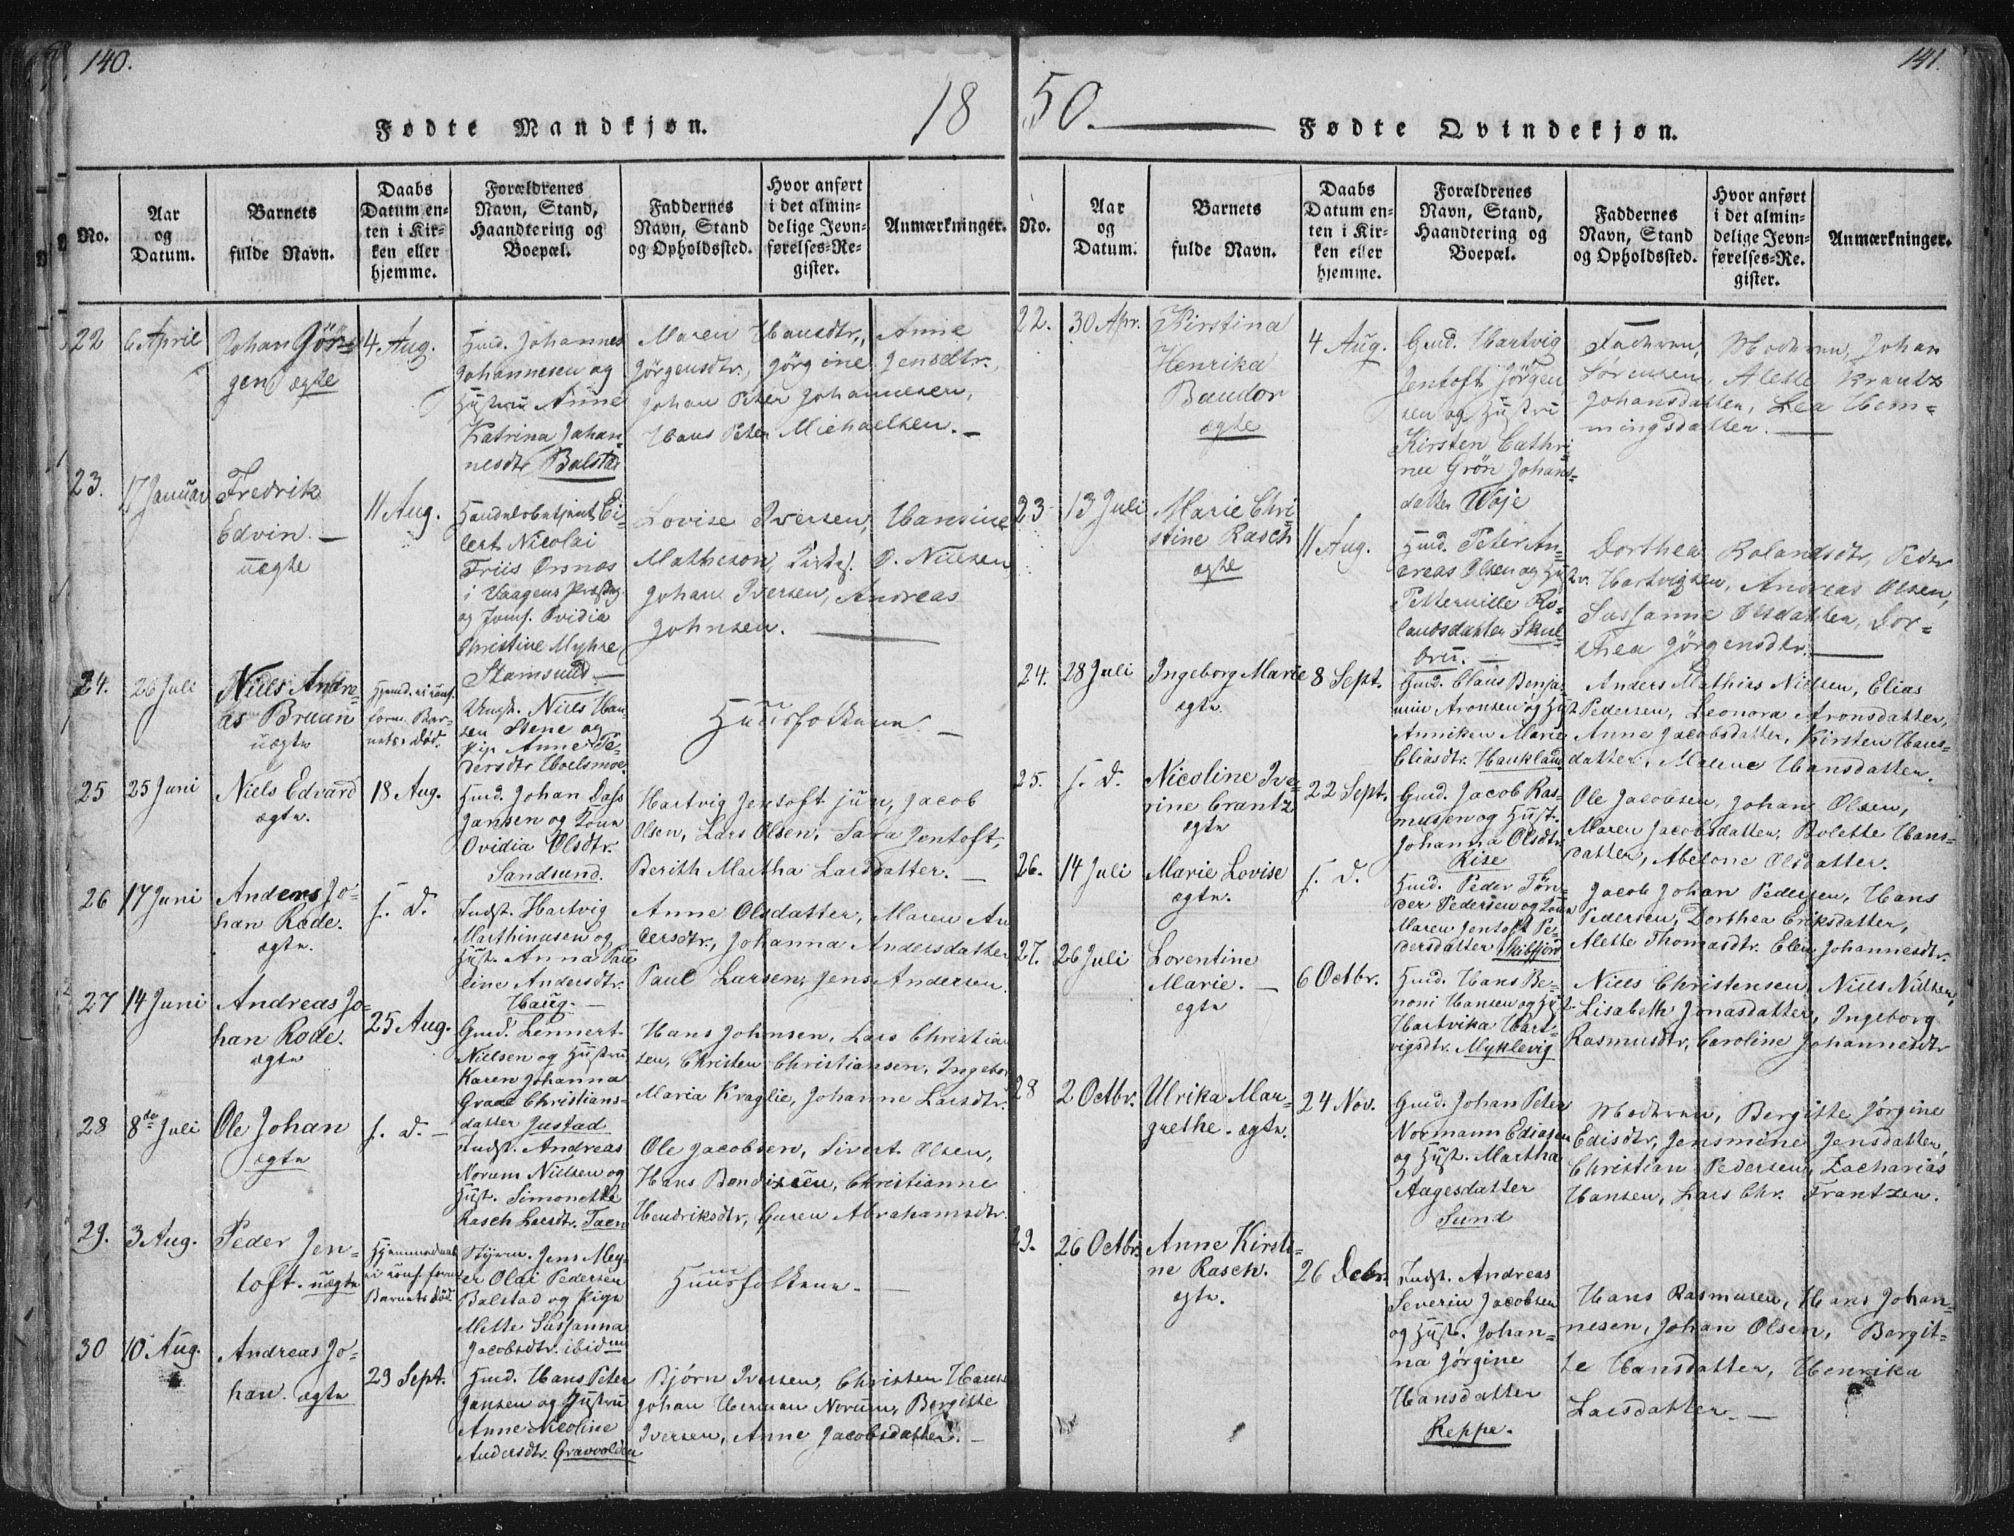 140.
18
Fødte Mandkjøn.
No.
Aar
og
Datum.
Barnets
fulde Navn.
Daabs
Datum en-
ten i Kir-
ken eller
hjemme.
Forældrenes
Navn, Stand,
Haandtering og
Boepæl.
Faddernes
Navn, Stand
og Opholdssted.
Hvor anført
i det almin-
delige Jevn-
førelses-Re-
gister.
Anmærkninger.
22
6 April
Johan Jör-
gen ægte
4 Aug.
Gmd. Johannes
Johannesen og
Hustru Anne
Katrina Johan-
nesdtr Balstad
Maren Hansdtr., Anne
Jörgensdtr., Jörgine Jensdtr.,
Johan Peter Johannesen,
Hans Peter Michaelsen. —
23.
17 Januar
Fredrik
Edvin. —
uægte
11 Aug.
Handelsbetjent Ei-
lert Nicolai
Friis Ørsnæs
i Vaagens Præstegj.
og Jomf. Ovidia
Christine Myhre
Stamsund. —
Lovise Iversen, Hansine
Matheson, Kirkes. O. Nielsen,
Johan Iversen, Andreas
Johnsen. —
24.
26 Juli
Niels Andre-
as Bruun
uægte
Hjemd. ei conf.
form. Bar-
nets Död.
Ungk. Niels Han-
sen Stene og
Pige Anne Pe-
dersdtr Holsmoe.
Huusfolkene. —
25
25 Juni
Niels Edvard
ægte.
18 Aug.
Gmd. Johan Dass
Jansen og Kone
Ovidia Olsdtr.
Sandsund.
Hartvig Jentoft jun, Jacob
Olsen, Lars Olsen, Sara Jentoft,
Berith Martha Larsdatter. —
26
17 Juni
Anders Jo-
han Rode.
ægte.
s. D.
Indst. Hartvig
Marthinusen og
Hust. Anna Pau
line Andersdtr.
Haug. —
Anne Olsdatter, Maren An
dersdtr., Johanna Andersdatter
Paul Larsen, Jens Andersen.
27
14 Juni
Andreas Jo-
han Rode.
ægte
25 Aug.
Gmd. Lennert
Nielsen og Hustru
Karen Johanna
Graae Christians-
datter Justad
Hans Johnsen, Lars Christian
sen, Christen Christiansen, Ingebor
Maria Kraglie, Johanne Larsdtr.
28
8de Juli
Ole Johan
ægte
s. D. —
Indst. Andreas
Norum Nielsen og
Hust. Simonette
Rasch Larsdtr. Taen
Ole Jacobsen, Sivert Olsen,
Hans Bendixen, Christianne
Hendriksdtr, Guren Abrahamsdtr.
29.
3 Aug.
Peder Jen-
toft. uægte
Hjemmedöbt
ei conf. form
Barnets död.
Styrm. Jens Mey-
er Olai Pedersen
Balstad og Pige
Mette Sussanna
Jacobsdtr. ibidm
Huusfolkene. —
30
10 Aug.
Andreas Jo-
han. ægte
29 Sept.
Gmd. Hans Peter
Jansen og Hustru
Anne Nicoline
Andersdtr. Gravvolden
Bjørn Iversen, Christen Hanse
Johan Herman Norum, Bergitte
Iversen, Anne Jacobsdatter. —
141.
50. —
Fødte Qvindekjøn.
No.
Aar
og
Datum.
Barnets
fulde Navn.
Daabs
Datum en-
ten i Kir-
ken eller
hjemme.
Forældrenes
Navn, Stand,
Haandtering og
Boepæl.
Faddernes
Navn, Stand
og Opholdssted.
Hvor anført
i det almin-
delige Jevn-
førelses-Re-
gister.
Anmærkninger.
22.
30 Apr.
Kirstina
Henrika
Baudor
ægte
4 Aug.
Gmd. Hartvig
Jentoft Jörgen
sen og Hustru
Kirsten Cathri-
nee Grön Johans-
datter Voje
Faderen, Moderen, Johan
Sørensen, Alette Krantz
Johansdatter, Lea Hem-
mingsdatter. —
23
13 Juli
Marie Chri-
stine Rasch
ægte
11 Aug.
Gmd. Peter An-
dreas Olsen og Hust
Petternille Ro-
landsdatter Skul-
bru. —
Dorthea Rolandsdtr, Peder
Hartvigsen, Andreas Olsen,
Sussanne Olsdatter, Dor-
thea Jørgensdtr. —
24.
28 Juli
Ingeborg Marie
ægte
8 Sept.
Gmd. Claus Benja-
min Aronsen og Hust
Anniken Marie
Eliasdtr. Haukland
Anders Mathias Nielsen, Elias
Pedersen, Leonora Aronsdatter,
Anne Jacobsdatter, Kirsten Hans-
datter, Malene Hansdatter.
25.
s. D.
Nicoline Ive-
rine Crantz
ægte
22 Sept.
Gmd. Jacob Ras-
mussen og Hust.
Johanna Olsdtr
Rise
Ole Jacobsen, Johan Olsen,
Maren Jacobsdatter, Bolette Hans-
datter, Abelone Olsdatter.
26.
14 Juli
Marie Lovise
ægte.
s. D.
Gmd. Peder Tön-
der Pedersen og Kone
Maren Jentoft Pe-
dersdatter Skibfjord
Jacob Johan Pedersen, Hans
Pedersen, Dorthea Eriksdatter,
Alette Thomasdtr. Elen Johannesdtr.
27.
26 Juli
Lorentine
Marie. —
ægte
6 Octbr.
Gmd. Hans Be-
noni Hansen og Hust
Hartvika Hart-
vigsdtr. Myklevig
Niels Christensen, Niels Nielsen,
Lisabeth Jonasdatter, Ingeborg
Rasmusdtr, Caroline Johannesdtr
28
2 Octbr.
Ulrika Mar-
grethe. ægte.
24 Nov.
Gmd. Johan Peter
Normann Ediasen
og Hust. Martha
Aagesdatter
Sund
Moderen, Bergitte Jörgine
Edisdtr, Jensmine Jensdatter,
Christian Pedersen, Zacharias
Hansen, Lars Chr. Frantzen.
29.
26 Octbr.
Anne Kirsti-
ne Rasch.
ægte.
26 Decbr.
Indst. Andreas
Severin Jacobsen
og Hust. Johan-
na Jörgine
Hansdatter
Reppe.
Hans Rasmusen, Hans Johan-
nesen, Johan Olsen, Bergit-
te Hansdatter, Henrika
Larsdatter. —